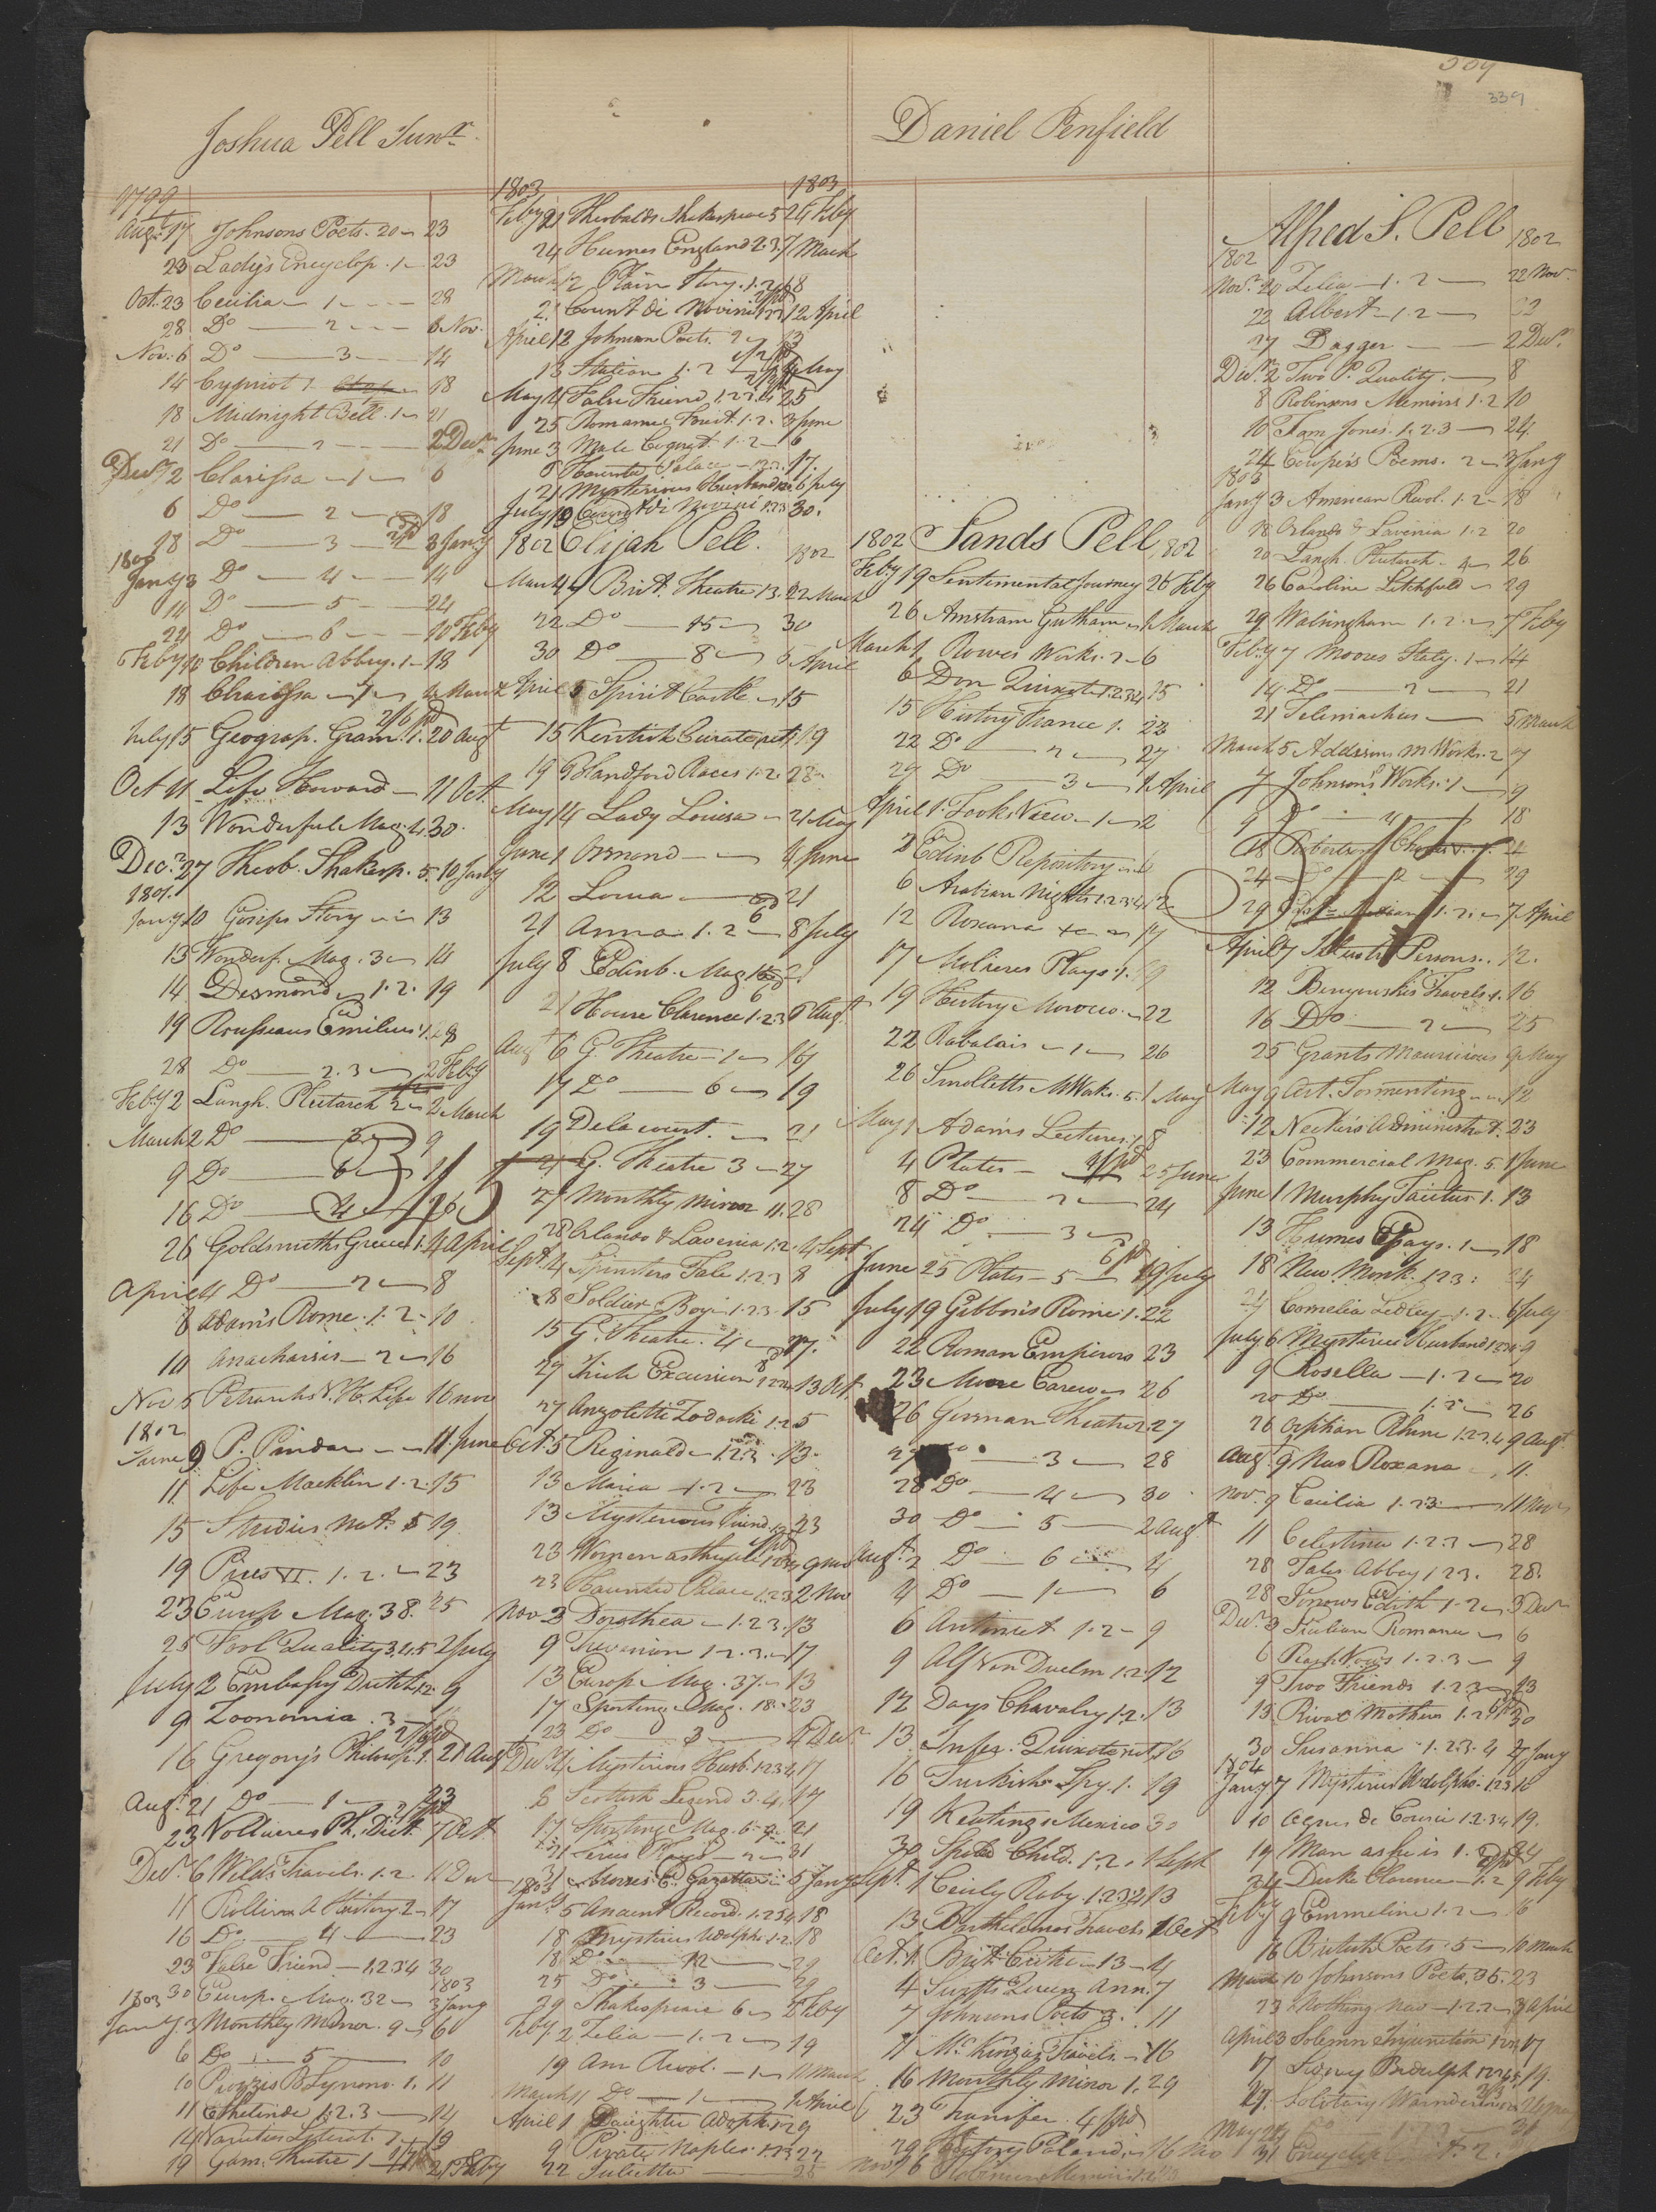 339
Joshua Pell Junr.
1799
Augt. 17 Johnsons Poets. 20 23
23 Lady's Encyclop. 1 23
Oct. 23 Cecilia 1 28
28 Do 2 6 Nov.
Nov. 6 Do 3 14
14 Cypriot 1 18
18 Midnight Bell. 1 21
21 Do 2 2 Decr
Decr 2 Clarissa 1 6
6 Do 2 18
18 Do 3 3 Jany
1800
Jany 3 Do 4 14
14 Do 5 24
24 Do 6 10 Feby
Feby 10 Children Abbey. 1 18
18 Clarissa 7 4 March
July 15 Geograp. Gram. 1. 2/6 pd 20 Augt
Oct 11 Life Howard 11 Oct.
13 Wonderful Mag. 4. 30.
Decr. 27 Theob. Shakesp. 5. 10 Jany
1801.
Jany 10 Gossips Story 13
13 Wonderf. Mag. 3 14
14 Desmond 1. 2. 19
19 Rousseaus Emilius 1. 28
28 Do 2. 3 2 Feby
Feby 2 Langh. Plutarch 2 2 March
March 2 Do 9
9 Do 6
16 Do 4 26
26 Goldsmiths Greece 1. 4 April
April 4 Do 2 8
8 Adams Rome. 1. 2 10
10 Anacharsis 2 16
Nov 5 Petrarchs V. H. Life 16 nov
1802
June 9 P. Pindar 11 June
11 Life Macklin 1. 2. 15
15 Studies. Nat. 5 19
19 Pius VI. 1. 2. 23
23 Europ Mag. 38. 25
25 Fool Quality 3. 4. 5 2 July
July 2 Embassy Dutch 1.2. 9
9 Zoonomia. 3
16 Gregory's Philosop. 1. 21 Augt
Augt. 21 Do 1 23
23 Voltaires Ph. Dict. 7 Oct
Decr. 6 Wilds Travels. 1. 2. 11 Decr
11 Rollins A History 2 17
16 Do 4 23
23 False Friend 1.2.3.4 30
1803 30 Europ. Mag. 32 1803 3 Jany
Jany. 3 Monthly Mirror. 9 6
6 Do 5 10
10 Piozzis B. Synono. 1. 11
11 Ethelinde 1. 2. 3 14
14 Varieties Literat. 1 19
19 Gam. Theatre 1 21 Feby
1803 1803
Feby 21 Theobalds Shakespeare 5 24 Feby
24 Humes England 2. 3. 7 March
March 12 Plain Story. 1. 2 18
21 Count di Novini 1.2.3 12 April
April 12 Johnson Poets. 2 13
13 Station 1. 2 4 May
May 4 False Friend 1.2.3.4 25
25 Romance Forest. 1. 2. 3 June
June 3 Male Coquet 1. 2 6
6 Haunted Palace 1.2.3. 17.
21 Mysterious Husband 6 July
July 19 Count di Novini 1.2.3 30.
1802 Elijah Pell. 1802
March 4 Brit. Theatre 13. 22 March
22 Do 15 30
30 Do 8 5 April
April 5 Spirit Castle 15
15 Kentish Curate 19
19 Blandford Races 1. 2. 28
May 14 Lady Louisa 21 May
June 1 Ormond 4 June
12 Louisa 21
21 Anna 1. 2 8 July
July 8 Edinb. Mag. 15 21
21 House Clarence 1.2.3 6 Augt.
Augt 6 G. Theatre 1 17
17 Do 6 19
19 Delacourt. 21
21 G. Theatre 3 27
27 Monthly Mirror 11. 28
28 Orlando & Lavenia 1. 2. 4 Sept.
Sept. 4 Spinsters Tale 1.2.3 8
8 Soldier Boy 1.2.3. 15
15 G. Theatre. 4 27.
27 Irish Excursion 1.2.3.4 13 Oct.
27 Anzoletta Zadoski 1. 2. 5
Oct. 5 Reginald 1.2.3. 13.
13 Maria 1. 2 23
13 Mysterious Friend 1.2. 23
23 Women as they are 9 nov
23 Haunted Palace 1.2.3 2 Nov
Nov 3 Dorothea 1. 2. 3. 13
9 Trevanion 1. 2. 3. 17
13 Europ. Mag. 37. 13
17 Sporting Mag. 18. 23
23 Do 3 4 Decr
Decr 4 Mysterious Husb. 1.2.3.4. 17
8 Scottish Legend 3. 4. 17
17 Sporting Mag. 6 21
21 31
31 Morses E. Gazetteer 5 Jany
1803
Jany 5 Ancient Record. 1.2.3.4 18
18 Mysteries Udolpho 1. 2. 18
18 Do 1 2 29
25 Do 3 29
29 Shakespeare 6 2 Feby
Feby 2 Zelia 1. 2 19
19 Am Revol. 1 11 March
March 11 Do 1 1 April
April 1 Daughter Adopt. 1.2 9
9 Pirate Naples 1.2.3 22
22 Julietta 28
Daniel Penfield
1802 Sands Pell. 1802
Feby 19 Sentimental Journey 26 Feby
26 Amstram Gutham 1 March
March 1 Rowes Works. 2 6
6 Don Quixote 1.2.3.4 15
15 History France 1. 22
22 Do 2 27
29 Do 3 1 April
April 1 Tooks View 1 2
2 Edinb Repository 6
6 Arabian Nights 1.2.3.4 12
12 Roxana 17
17 Molieres Plays. 1. 19
19 History Morocco 22
22 Rabalais 1 26
26 Smolletts M Works. 5. 1 May
May 1 Adams Lectures 8
4 Plates 25 June
8 Do 2 24
24 Do 3
June 25 Plates 5 19 July
July 19 Gibbons Rome 1. 22
22 Roman Emperors 23
23 Moore Carew 26
26 German Theatre 27
27 Do 3 28
28 Do 4 30
30 Do 5 2 Augt
Augt. 2 Do 6 4
4 Do 1 6
6 Antoinet 1. 2 9
9 Alf Von Duelm 1. 2. 12
12 Days Chavalry 1. 2. 13
13 Infer. Quixote 16
16 Turkish Spy. 1. 19
19 Keatings Mexico 30
30 Spoild Child. 1. 2. 1 Sept
Sept. 1 Cecily Raby. 1.2.3.4 13
13 Barthelamos Travels 1 Oct
Oct. 1 Brit Critic 13 4
4 Swifts Queen Ann. 7
7 Johnsons Poets 3. 11
11 McKinzias Travels 16
16 Monthly Mirror 1. 29
23 Transfer. 4 pd
29 History Poland 16 Nov
Nov 16
Alfred S. Pell 1802
1802
Novr. 20 Zelia 1. 2 22 Nov
22 Albert 1. 2
27 Dagger 2 Decr.
Decr. 2 Two P. Quality. 8
8 Robinsons Memoirs 1. 2 10
10 Tom Jones. 1. 2. 3 24
24 Cowpers Poems. 2 3 Jany
1803
Jany 3 American Revol. 1. 2 18
18 Orlando & Lavinia 1. 2 20
20 Langh. Plutarch. 4 26
26 Caroline Litchfield 29
29 Walsingham 1. 2 7 Feby
Feby 7 Moores Italy. 1 14
14 Do 2 21
21 Telemachus 5 March
March 5 Addisons M Works. 2 7
7 Johnsons Works. 1 9
9 Do 4 18
18 Robertsons Charles v. 24
24 Do 2 29
29 7 April
April 7 Illustr Persons. 12.
12 Benyowskis Travels. 1. 16
16 Do 2 25
25 Grants Mauricious 9 May
May 9 Art. Tormenting 12
12 Neckers Administrat. 23
23 Commercial Mag. 5. 1 June
June 1 Murphy Tacitus. 1. 13
13 Humes Essays. 1 18
18 New Monk. 1.2.3. 24
24 Cornelia Sedley 1. 2 6 July
July 6 Mysterious Husband 1.2.3.4 9
9 Rosella 1. 2 20
20 Do 1. 2 26
26 Orphan Rhine 1.2.3.4 9 Augt
Augt. 9 New Roxana 11.
Nov. 9 Cecilia 1. 2. 3 11 Nov
11 Celestina 1. 2. 3 28
28 Tales Abbey 1. 2. 3. 28.
28 Sorrows Edith 1. 2 3 Decr
Decr. 3 Italian Romance 6
6 9
9 Two Friends 1. 2. 3 13
13 Rival Mothers 1. 2. 30
30 Susanna 1. 2. 3. 4 7 Jany
1804
Jany 7 Mysteries Udolpho 1.2.3 10
10 Agnes de Courci 1.2.3.4 19.
19 Man as he is 1. 24
24 Duke Clarence 1. 2 9 Feby
Feby 9 Emmeline 1. 2 16
16 British Poets. 5 10 March
March 10 Johnsons Poets. 36. 23
23 Nothing New 1. 2. 3 3 April
April 3 Solemn Injunction 17
17 Sidney Bidulph 19.
27. Solitary Wanderer
May 31
31 Encyclop